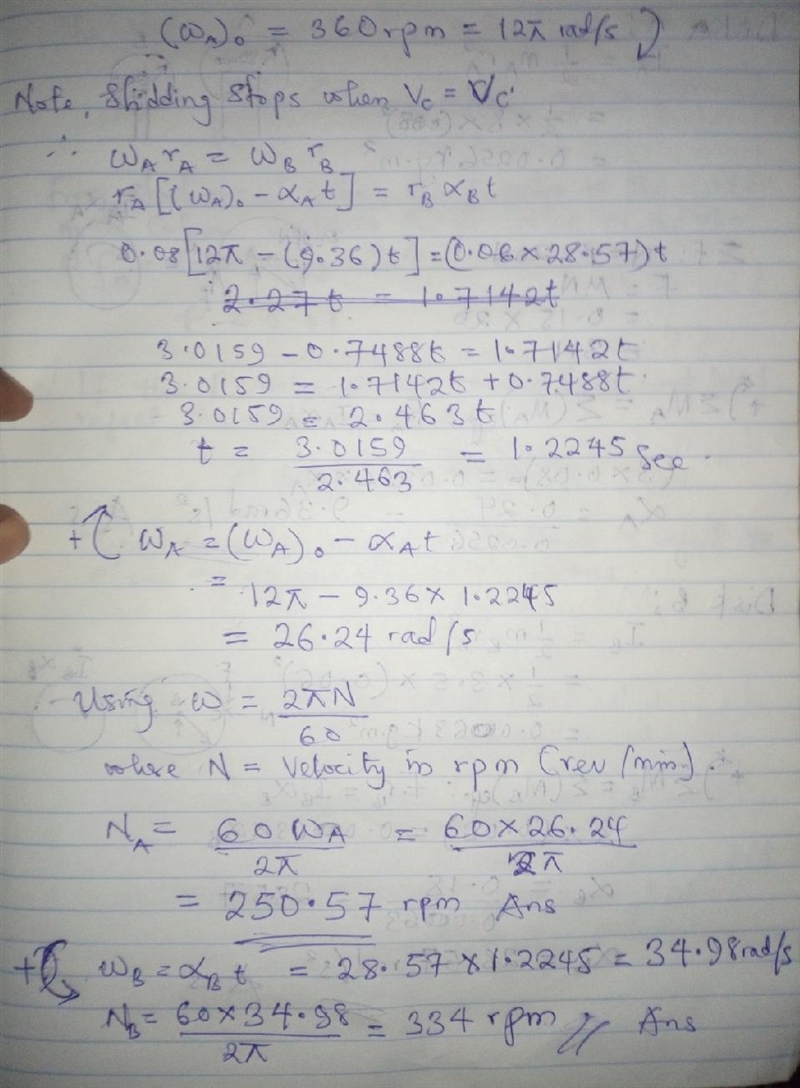 (ωA)₀ = 360rpm = 12π rad/s
Note, Slidding stops when Vc = Vc'
∴ ωA rA = ωB rB
rA[(ωA)₀ - αA t] = rB αB t
0.08[12π - (9.36)t] = (0.06 × 28.57)t
2.27t = 1.7142t
3.0159 - 0.7488t = 1.7142t
3.0159 = 1.7142t + 0.7488t
3.0159 = 2.463t
t = 3.0159/2.463 = 1.2245 Sec.
+ ωA = (ωA)₀ - αA t
= 12π - 9.36 × 1.2245
= 26.24 rad/s
Using ω = 2πN/60
where N = Velocity in rpm (rev/min).
NA = 60ωA/2π = 60×26.24/2π
= 250.57 rpm Ans
+ ωB = αB t = 28.57 × 1.2245 = 34.98 rad/s
NB = 60×34.98/2π = 334 rpm // Ans